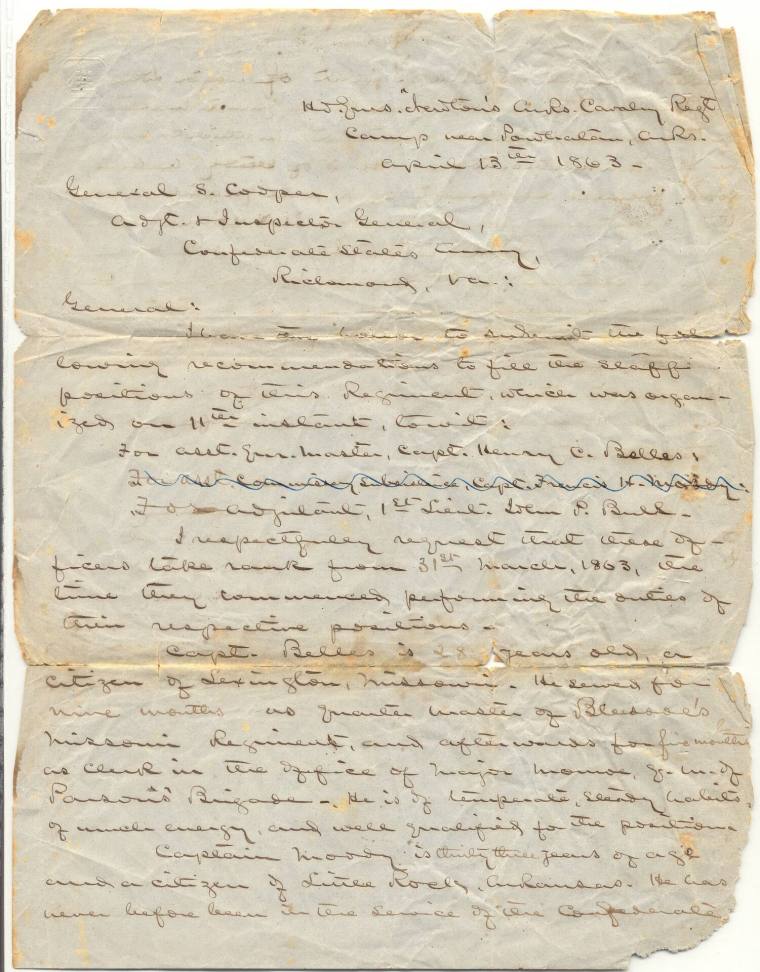 Hd. Qrs. Newton's Arks. Cavalry Regt
Camp near Powhatan, Arks.
April 13th 1863 -
General S. Cooper,
Adjt. & Inspector General,
Confederate States Army,
Richmond, Va.:
General:
I have the honor to submit the fol-
lowing recommendations to fill the staff
positions of this Regiment, which was organ-
ized on 11th instant, towit:
For asst. Qur. Master, Capt. Henry C. Belles;
For asst. Commissary Subsistence, Capt. Francis H. Moody;
For Adjutant, 1st Lieut. John P. Bull -
I respectfully request that these of-
ficers take rank from 31st March, 1863, the
time they commenced performing the duties of
their respective positions -
Capt. Belles is 28 years old, a
citizen of Lexington, Missouri. He served for
nine months as Quarter Master of Bledsoe's
Missouri Regiment, and afterwards for months
as clerk in the office of Major Monroe, Q. M. of
Parson's Brigade -. He is of temperate, steady habits,
of much energy, and well qualified for the position.
Captain Moody is thirty three years of age
and a citizen of Little Rock, Arkansas. He has
never before been in the service of the Confederate